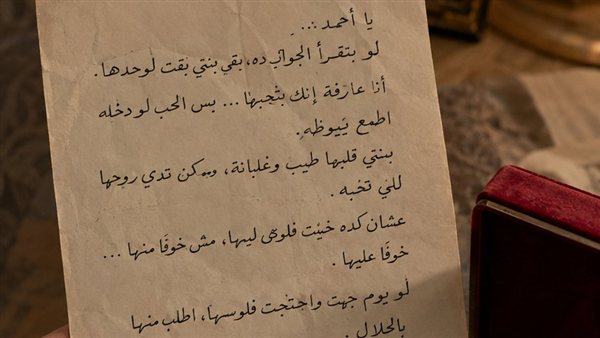 يا أحمد ...
لو بتقرأ الجواب ده، بقي بنتي بقت لوحدها.
أنا عارفة إنك بتحبها ... بس الحب لو دخله
اطمع يبوظه.
بنتي قلبها طيب وغلبانة، وممكن تدي روحها
للي تحبه.
عشان كده خبيت فلوسي ليها، مش خوفا منها ...
خوفا عليها.
لو يوم جهت واحتجت فلوسها، اطلب منها
بالحلال.